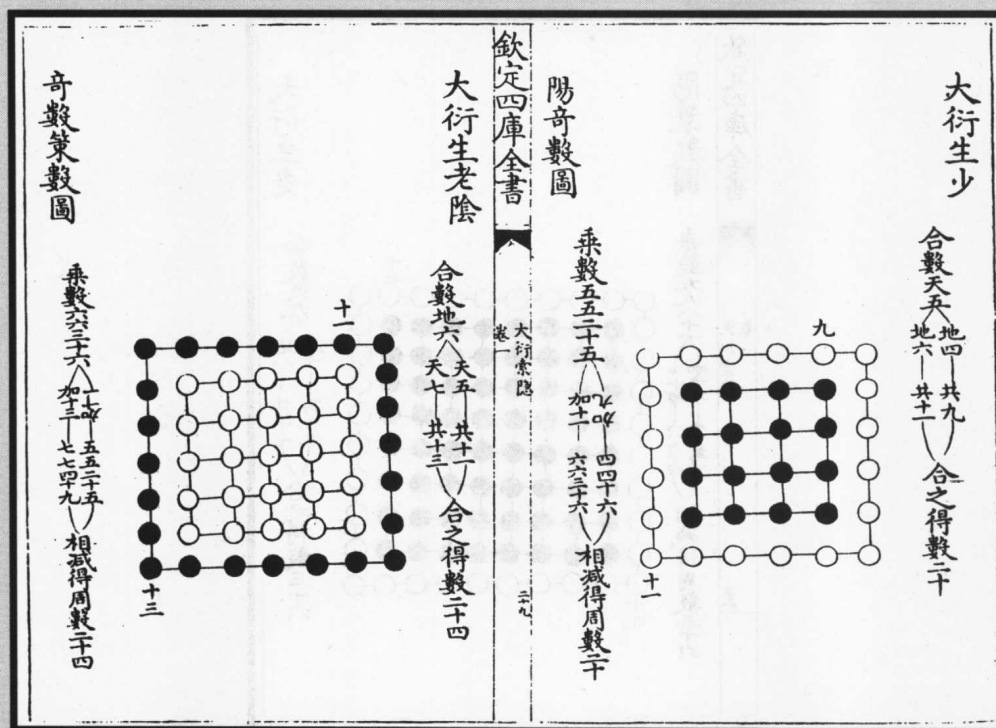 大衍生少
合數天五
地四
共九
地六
共十一
合之得數二十
陽奇數圖
乘數五五二十五
四四十六
加十一
六六三十六
相減得周數二十
九
十一
欽定四庫全書
大衍索隱
卷
大衍生老陰
合數地六
天五
共十一
天七
共十三
合之得數二十四
奇數策數圖
乘數六六三十六
五五二十五
加十三
七七四十九
相減得周數二十四
十一
十三